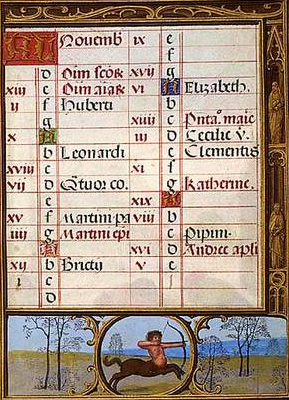 KL Novemb ix e
f
d Oim scōꝝ xvij g
xiij e Oim aīaꝝ vi A Elizabeth.
ij f Huberti b
g xiiij c Pnta. maie
x A iij d Cecilie v.
b Leonardi e Clementis
xviij c xi f
vij d Qtuor co. g Katherine.
e xix A
xv f Martini pa viij b
iiij g Martini epi c Pipini.
A xvi d Andree apli
xij b Brictij v e
i c
d